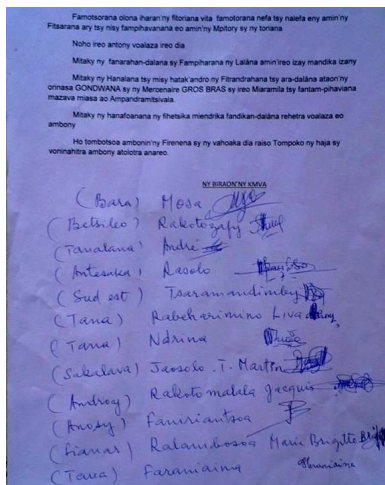 Famotsorana olona iharan'ny fitoriana vita famotorana nefa tsy nalefa eny amin'ny
Fitsarana ary tsy nisy fampihavanana eo amin'ny Mpitory sy ny toriana
Noho ireo antony voalaza ireo dia
Mitaky ny fanarahan-dalana sy Fampiharana ny Lalàna amin'ireo izay mandika izany
Mitaky ny Hanalana tsy misy hatak'andro ny Fitrandrahana tsy ara-dalàna ataon'ny
orinasa GONDWANA sy ny Mercenaire GROS BRAS sy ireo Miaramila tsy fantam-pihaviana
mazava miasa ao Ampandramitsivala.
Mitaky ny hanafoanana ny fihetsika miendrika fandikan-dalàna rehetra voalaza eo
ambony
Ho tombotsoa ambonin'ny Firenena sy ny vahoaka dia raiso Tompoko ny haja sy
voninahitra ambony atolotra anareo.
NY BIRAON'NY KMVA
(Bara) Mosa
(Betsileo) Rakotozafy
(Tanalana) André
(Antesaka) Rasolo
(Sud est) Tsaramandimby
(Tana) Rabeharimino Liva
(Tana) Ndrina
(Sakalava) Jaosolo. T. Martin
(Androy) Rakotomalala Jacquis
(Anosy) Faniriantsoa
(Fianar) Ralambosoa Marie Brigitte
(Tana) Faraniaina